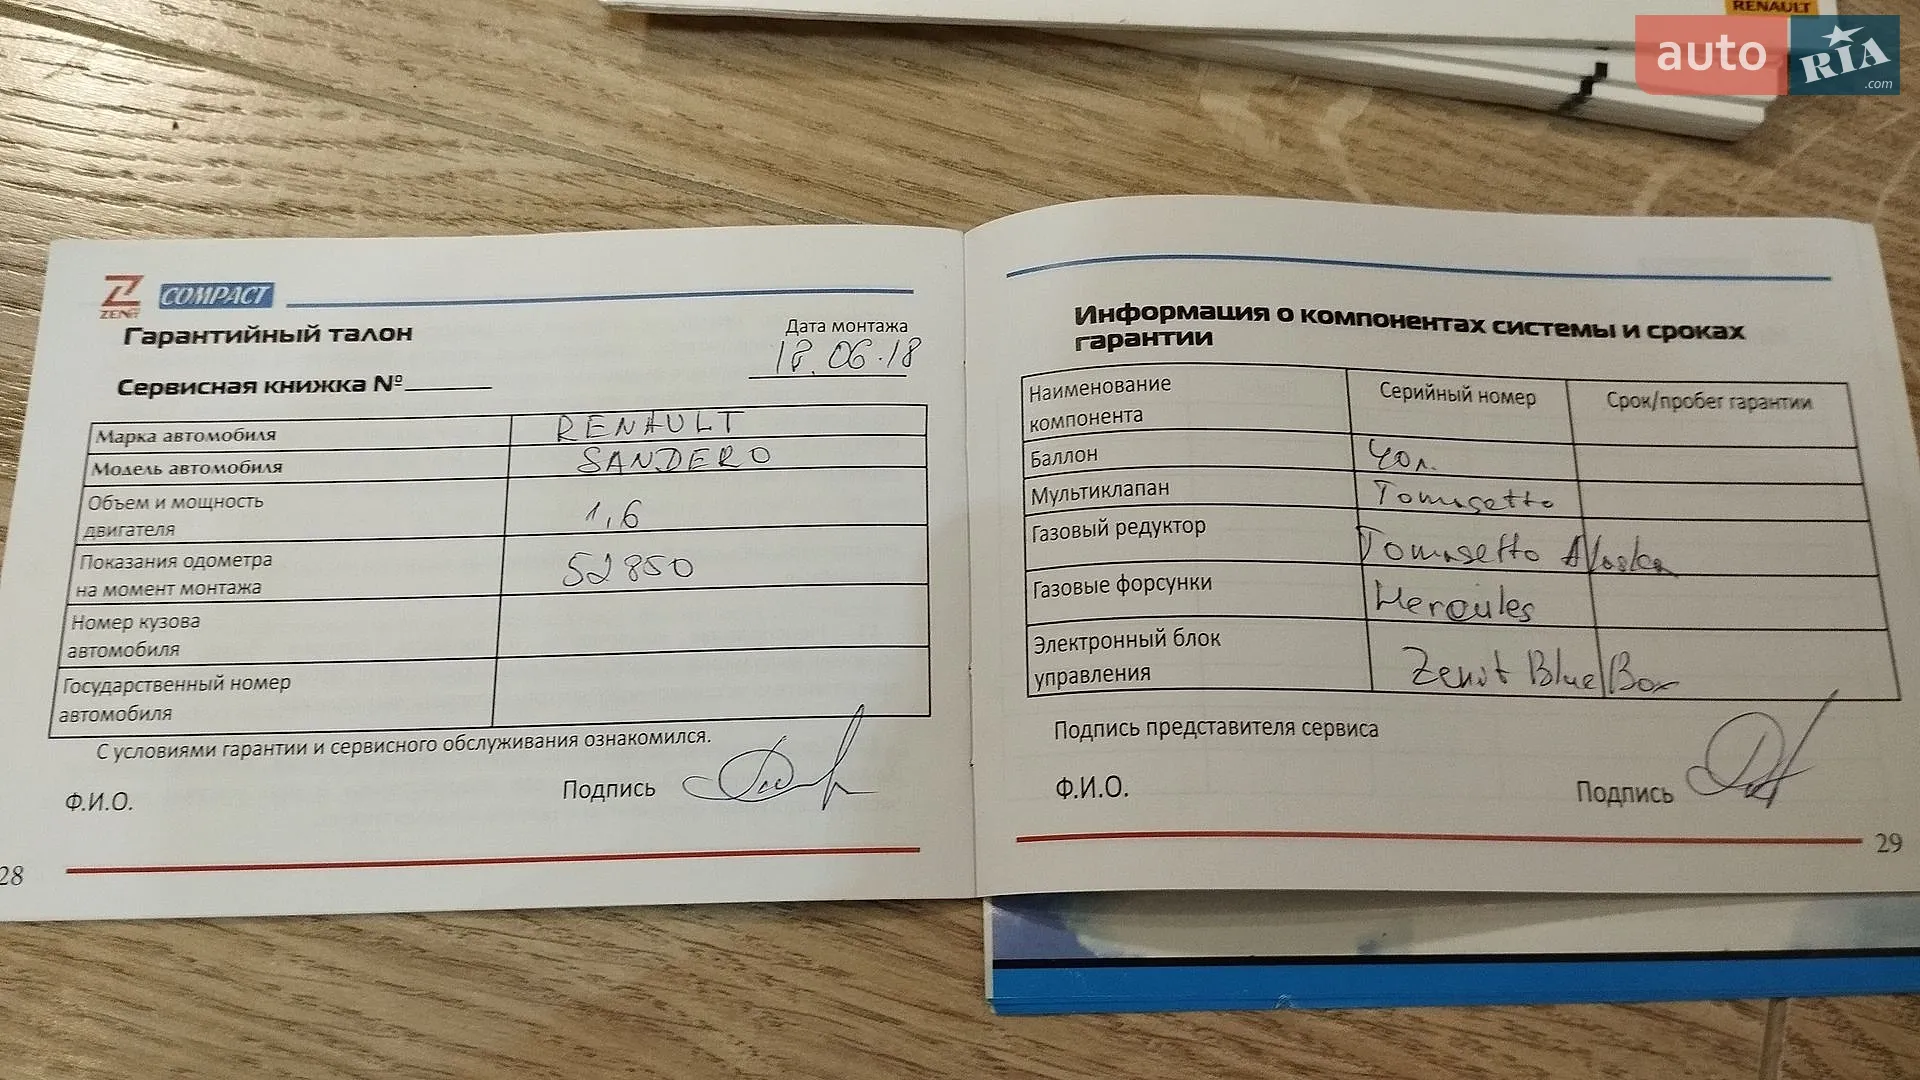 RENAULT
auto RIA .com
ZENIT COMPACT
Гарантийный талон
Дата монтажа
18.06.18
Сервисная книжка №
Марка автомобиля RENAULT
Модель автомобиля SANDERO
Объем и мощность
двигателя 1,6
Показания одометра
на момент монтажа 52850
Номер кузова
автомобиля
Государственный номер
автомобиля
С условиями гарантии и сервисного обслуживания ознакомился.
Ф.И.О. Подпись
28
Информация о компонентах системы и сроках
гарантии
Наименование
компонента Серийный номер Срок/пробег гарантии
Баллон 40л.
Мультиклапан Tomasetto
Газовый редуктор Tomasetto Alaska
Газовые форсунки Hercules
Электронный блок
управления Zenit Blue Box
Подпись представителя сервиса
Ф.И.О. Подпись
29